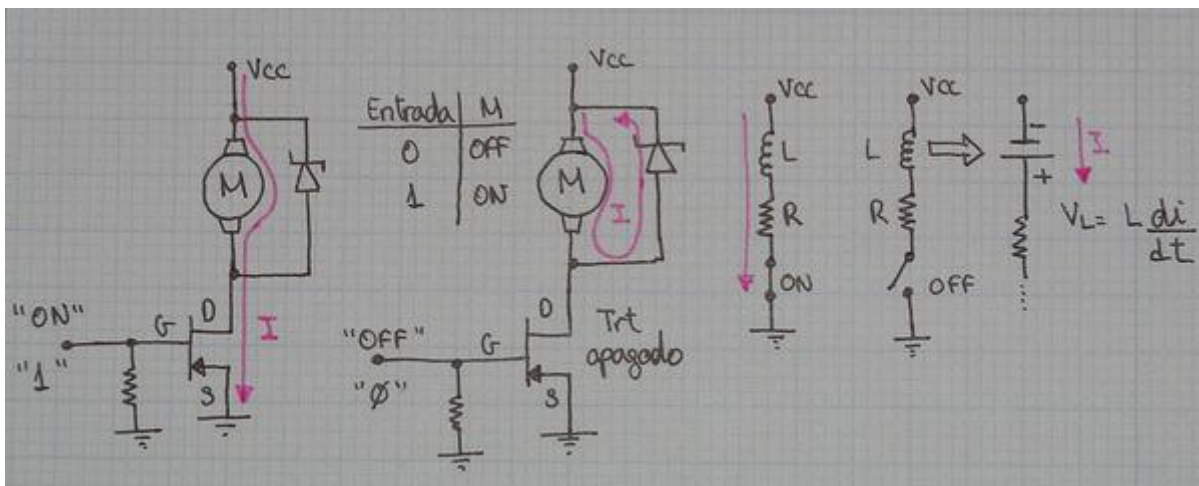 Vcc
M
"ON"
"1"
G
D
S
I
Entrada M
0 OFF
1 ON
Vcc
M
I
"OFF"
"Ø"
G
D
S
Trt
apagado
Vcc
L
R
ON
Vcc
L
R
OFF
-
+
I
VL = L di/dt